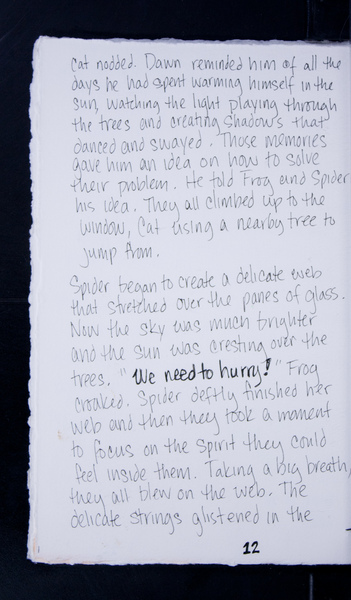 Cat nodded. Dawn reminded him of all the
days he had spent warming himself in the
sun, watching the light playing through
the trees and creating shadows that
danced and swayed. Those memories
gave him an idea on how to solve
their problem. He told Frog and Spider
his idea. They all climbed up to the
window, Cat using a nearby tree to
jump from.
Spider began to create a delicate web
that stretched over the panes of glass.
Now the sky was much brighter
and the sun was cresting over the
trees. "We need to hurry!" Frog
croaked. Spider deftly finished her
web and then they took a moment
to focus on the spirit they could
feel inside them. Taking a big breath,
they all blew on the web. The
delicate strings glistened in the
12